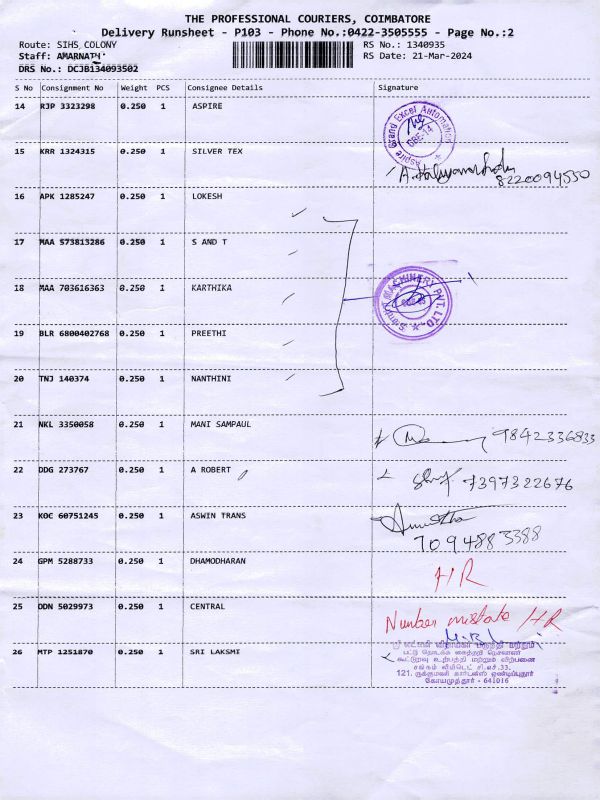 THE PROFESSIONAL COURIERS, COIMBATORE
Delivery Runsheet - P103 - Phone No.:0422-3505555 - Page No.:2
Route: SIHS COLONY RS No.: 1340935
Staff: AMARNATH RS Date: 21-Mar-2024
DRS No.: DCJB134093502
S No Consignment No Weight PCS Consignee Details Signature
14 RJP 3323298 0.250 1 ASPIRE
Aspire Grand Excel Automation
15 KRR 1324315 0.250 1 SILVER TEX
8220094550
16 APK 1285247 0.250 1 LOKESH
17 MAA 573813286 0.250 1 S AND T
18 MAA 703616363 0.250 1 KARTHIKA
MACHINERY PVT. LTD.
19 BLR 6800402768 0.250 1 PREETHI
20 TNJ 140374 0.250 1 NANTHINI
21 NKL 3350058 0.250 1 MANI SAMPAUL 9842336833
22 DDG 273767 0.250 1 A ROBERT 7397322676
23 KOC 60751245 0.250 1 ASWIN TRANS
7094883388
24 GPM 5288733 0.250 1 DHAMODHARAN HR
25 DDN 5029973 0.250 1 CENTRAL Number mistake HR
26 MTP 1251870 0.250 1 SRI LAKSMI
பட்டு நோடக்க கைத்தறி நெசவாளர்
கூட்டுறவு உற்பத்தி மற்றும் விற்பனை
சங்கம் லிமிடெட் சி.எச்.33.
121, ருக்குமணி கார்டன்ஸ் ஒண்டிப்புதூர்
கோயமுத்தூர் - 641016